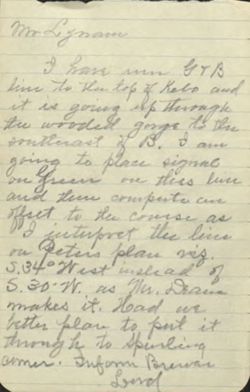 Mr Lynam
I have run G & B
line to the top of Kebo and
it is going up through
the wooded gorge to the
southeast of B. I am
going to place signal
on Green on this line
and then compute an
offset to the course as
I interpret the line
on Peters plan viz.
S. 34° West instead of
S. 30° W. as Mr. Deane
makes it. Had we
better plan to put it
through to Spurling
corner. Inform Brewer
Savd